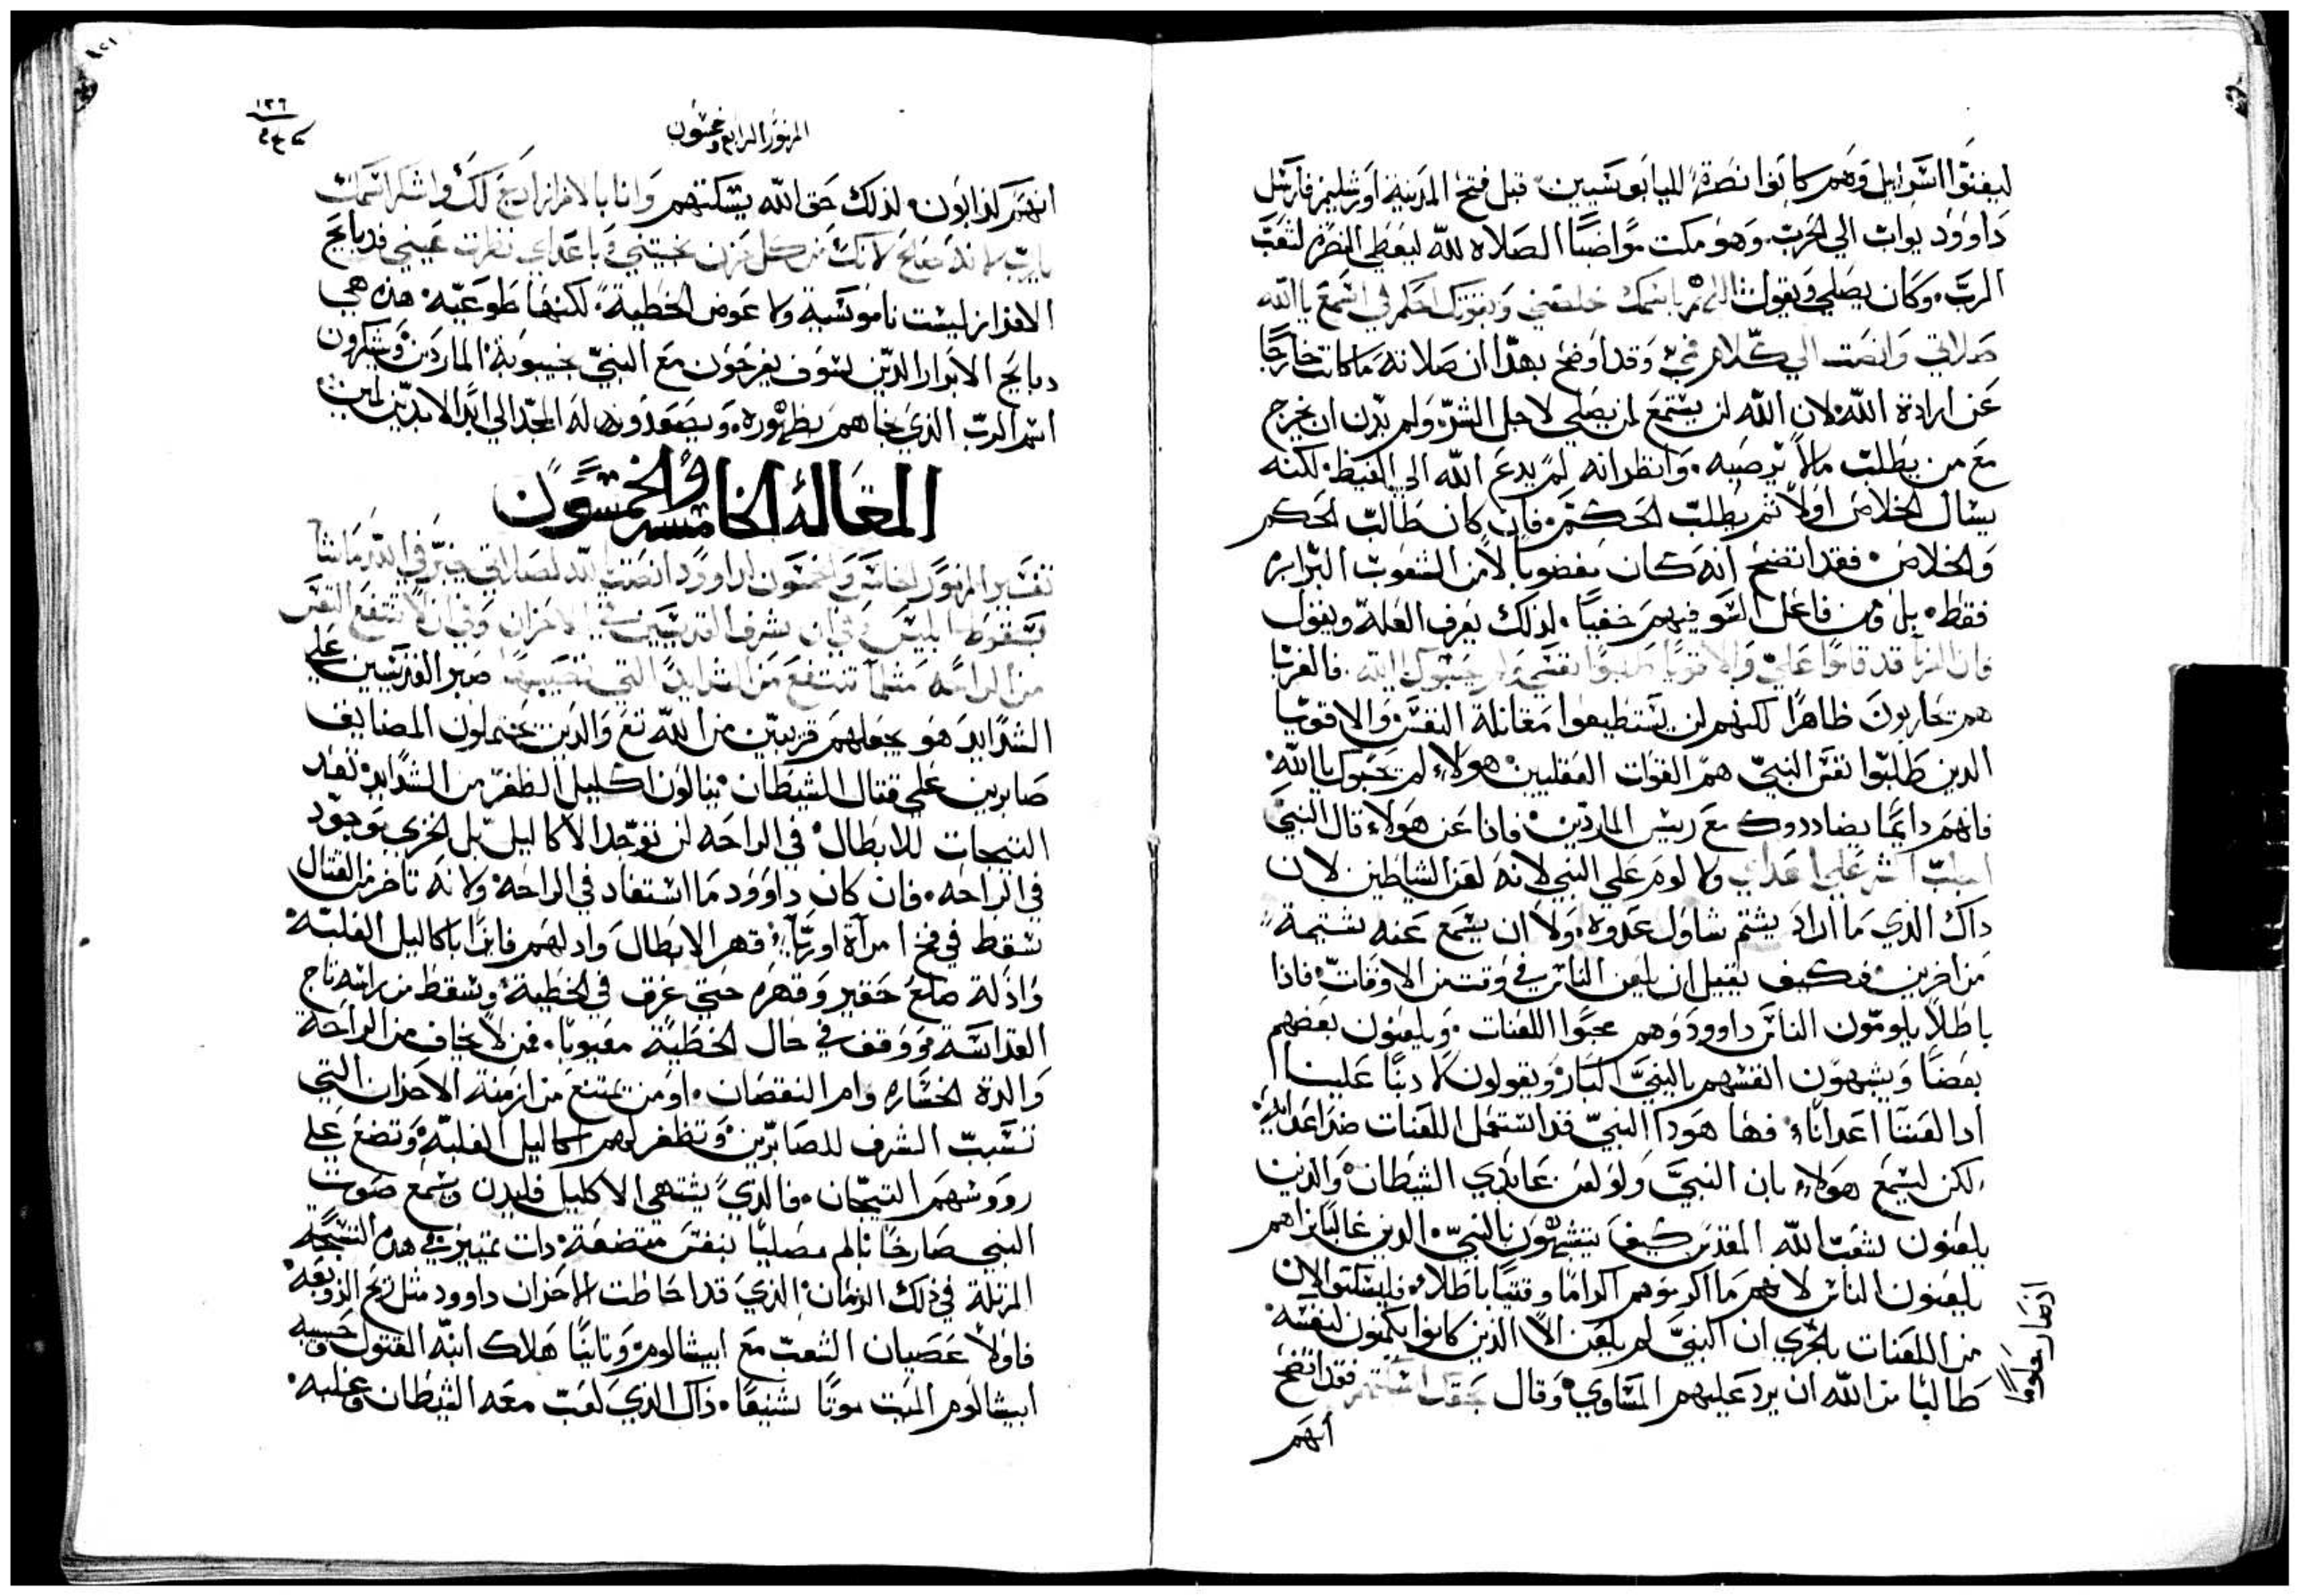 ليفنوا اسرايل وهم كانوا نصرة لليابوسيين قبل فتح المدينة اورشليم فارسل
داوود يواب الي الحرب. وهو مكت مواضبًا الصلاه لله ليعطي النصرة لشعب
الرب. وكان يصلي ويقول اللهم باسمك خلصني وبقوتك احكم لي اسمع يا الله
صلاتي وانصت الي كلام في وقد اوضح بهدا ان صلاته ما كانت خارجًا
عن ارادة الله لان الله لن يستمع لمن يصلي لاجل الشر ولم يدن ان يخرج
مع من يطلب ما لا يرضيه. وانظر انه لم يدع الله الي الغيظ لكنه
يسال الخلاص اولاً ثم يطلب الحكم. فان كان طالب الحكم
والخلاص فقد اتضح انه كان مغضوبًا لا من الشعوب البرابره
فقط بل ومن فاعل السو فيهم خفيًا. لذلك يعرف العلة ويقول
فان الغربا قد قاموا علي والاقويا طلبوا نفسي ولم يحسبوك يا الله. فالغربا
هم يحاربون ظاهرًا لكنهم لن يستطيعوا مقاتلة النفس والاقويا
الدين طلبوا نفس النبي هم القوات العقليين هولاء لم يحسبوك يا الله
فانهم دايمًا يضاددوك مع رييس الماردين فاذا عن هولاء قال النبي
اجلب الشر علي اعداي ولا لوم علي النبي لانه لعن الشياطين لان
داك الذي ما اراد يشتم شاول عدوه ولا ان يسمع عنه شتيمة
من اخرين فكيف يقبل ان يلعن الناس في وقت من الاوقات فاذا
باطلاً يلومون الناس داوود وهم محبوا اللعنات. ويلعنون بعضهم
بعضًا ويشبهون انفسهم بالنبي البار ويقولون لا دنبًا علينا
ادا لعننا اعدانا فها هودا النبي قد استعمل اللعنات ضد اعدايه
لكن ليسمع هولاء بان النبي ولو لعن عابدي الشيطان والذين
يلعنون لشعب الله المقدس كيف يتشبهون بالنبي الدين غالبًا نراهم
يلعنون الناس لانهم ما اكرموهم اكرامًا وقتيًا باطلاً فليسكتوا لان
من اللعنات بالحري ان النبي لم يلعن الا الذين كانوا يكمنون لنفسه
طالبًا من الله ان يرد عليهم المساوي وقال بحقك استاصلهم فقد اتضح
انهم
المزمور الرابع وخمسون
١٢٦
انهم كذابون. لذلك حق الله يسكتهم وانا بالافراز ادبح لك واشكر اسمك
يارب لانه صالح لانك من كل حزن نجيتني وباعداي نظرت عيني فدبايح
الافراز ليست ناموسية ولا عوض الخطية لكنها طوعيه هذه هي
دبايح الابرار الدين سوف يفرحون مع النبي بخيبوبة الماردين ويشكرون
اسم الرب الذي نجاهم بظهوره. ويصعدون له المجد الي ابد الابدين امين
المقالة الخامسه والخمسون
تفسير المزمور الخامس والخمسون لداوود انصت يا الله لصلاتي
بسقوط ابليس وفي ان شرف القديسين في الاحزان وفي ان لا تنتفع النفس
من الراحه مثلما تنتفع من الشدايد التي تصيبها صبر القديسين علي
الشدايد هو يجعلهم قريبين من الله تع والدين يحتملون المصايب
صابرين علي قتال الشيطان ينالون اكليل الظفر من الشدايد تعد
التيجان للابطال في الراحه لن توجد الاكاليل بل الخزي يوجد
في الراحه. فان كان داوود ما استفاد في الراحة ولانه تاخر من القتال
سقط في فخ امرآة اوريا. قهر الابطال وادلهم فايزًا باكاليل الغلبة
واذلة ضلع حقير وقهره حتي غرق في الخطية وسقط من راسه تاج
القداسة ووقف في حال الخطية معيوبًا. فمن لا يخاف من الراحة
والدة الخساره وام النقصان. او من يمتنع من ازمنة الاحزان التي
تسبب الشرف للصابرين وتظفر لهم اكاليل الغلبة وتضع علي
رووسهم التيجان. فالذي يشتهي الاكليل فليدن ويسمع صوت
النبي صارخًا نالم مصليًا بنفس متضعة دات تمييز في هده التسبحه
المرتلة في ذلك الزمان الذي قد احاطت الاحزان داوود مثل ريح الزوبعة
فاولاً عصيان الشعب مع ابيشالوم وتانيًا هلاك ابنه المقتول
ابيشالوم الميت موتًا شنيعًا. ذاك الذي لعب معه الشيطان وغلبه